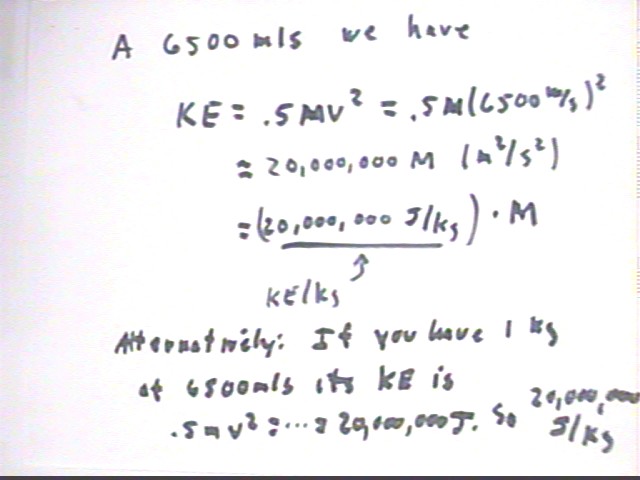 A 6500 m/s we have
KE = .5 MV² = .5M(6500 m/s)²
≈ 20,000,000 M (m²/s²)
= (20,000,000 J/kg) · M
KE/kg
Alternatively: If you have 1 kg
at 6500m/s its KE is
.5mv² = ... = 20,000,000J. So 20,000,000 J/kg